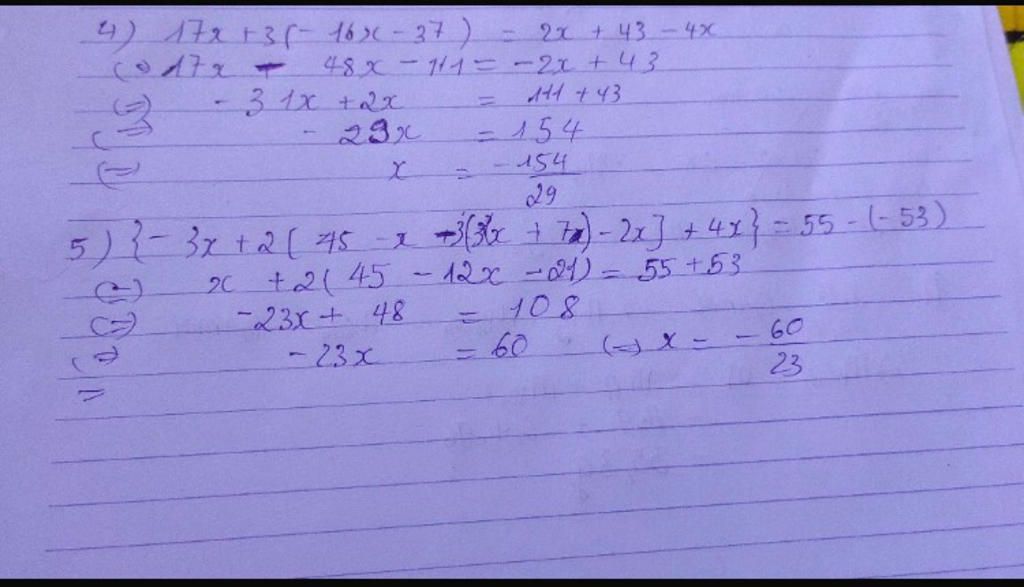 4) 17x + 3(- 16x - 37) = 2x + 43 - 4x
(=) 17x - 48x - 111 = -2x + 43
(=) - 31x + 2x = 111 + 43
(=) - 29x = 154
(=) x = -154/29
5) {- 3x + 2[ 45 - x - 3(3x + 7) - 2x] + 4x} = 55 - (- 53)
(=) x + 2( 45 - 12x - 21) = 55 + 53
(=) -23x + 48 = 108
(=) -23x = 60 (=) x = - 60/23
=